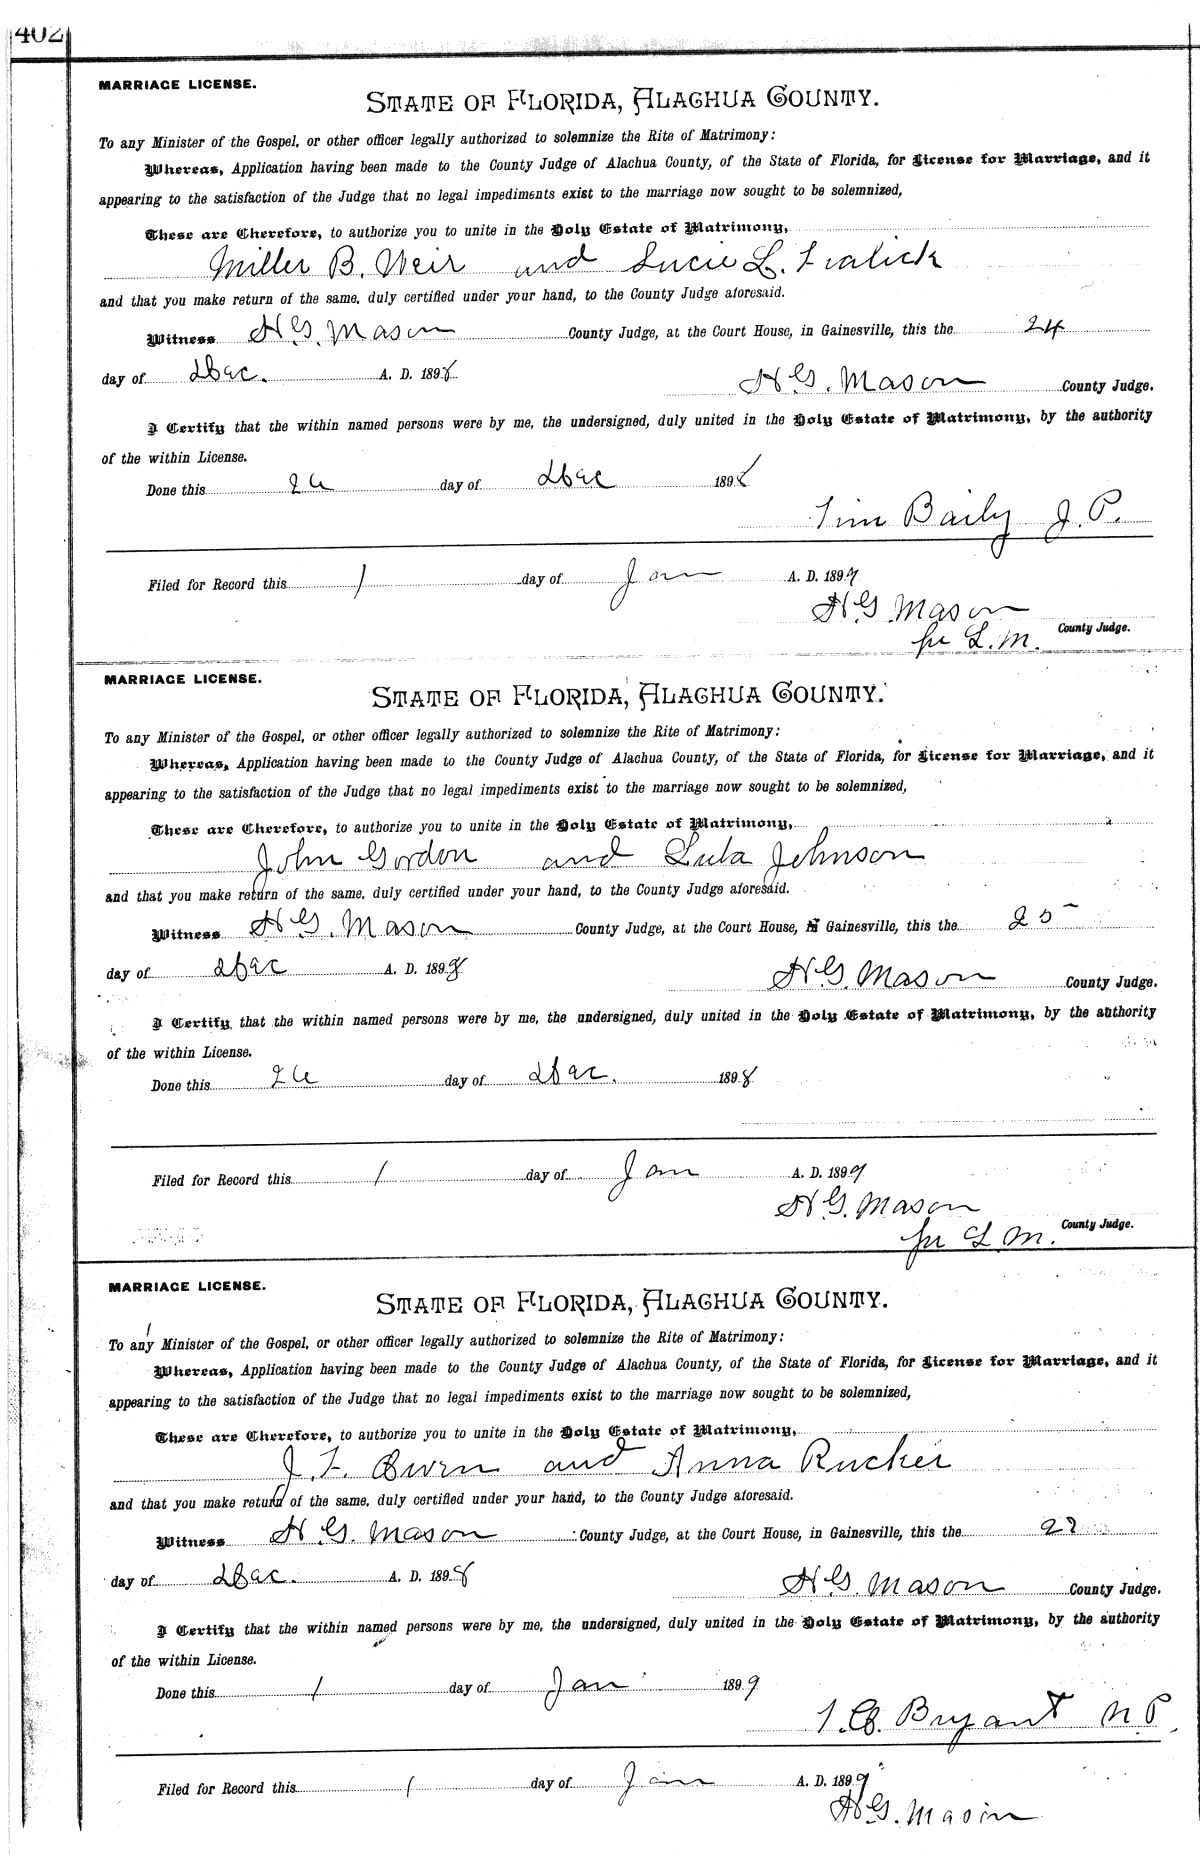 402
MARRIAGE LICENSE.
STATE OF FLORIDA, ALACHUA COUNTY.
To any Minister of the Gospel, or other officer legally authorized to solemnize the Rite of Matrimony:
Whereas, Application having been made to the County Judge of Alachua County, of the State of Florida, for License for Marriage, and it
appearing to the satisfaction of the Judge that no legal impediments exist to the marriage now sought to be solemnized,
These are Therefore, to authorize you to unite in the Holy Estate of Matrimony,
Miller B. Weir and Lucie L. Fralick
and that you make return of the same, duly certified under your hand, to the County Judge aforesaid.
Witness H. G. Mason County Judge, at the Court House, in Gainesville, this the 24
day of Dec. A. D. 1898
H. G. Mason County Judge.
I Certify that the within named persons were by me, the undersigned, duly united in the Holy Estate of Matrimony, by the authority
of the within License.
Done this 26 day of Dec 1898
Tim Baily J. P.
Filed for Record this 1 day of Jan A. D. 1899
H. G. Mason
County Judge.
per L. M.
MARRIAGE LICENSE.
STATE OF FLORIDA, ALACHUA COUNTY.
To any Minister of the Gospel, or other officer legally authorized to solemnize the Rite of Matrimony:
Whereas, Application having been made to the County Judge of Alachua County, of the State of Florida, for License for Marriage, and it
appearing to the satisfaction of the Judge that no legal impediments exist to the marriage now sought to be solemnized,
These are Therefore, to authorize you to unite in the Holy Estate of Matrimony,
John Gordon and Lula Johnson
and that you make return of the same, duly certified under your hand, to the County Judge aforesaid.
Witness H. G. Mason County Judge, at the Court House, in Gainesville, this the 25
day of Dec A. D. 1898
H. G. Mason County Judge.
I Certify that the within named persons were by me, the undersigned, duly united in the Holy Estate of Matrimony, by the authority
of the within License.
Done this 26 day of Dec. 1898
Filed for Record this 1 day of Jan A. D. 1899
H. G. Mason
County Judge.
per L. M.
MARRIAGE LICENSE.
STATE OF FLORIDA, ALACHUA COUNTY.
To any Minister of the Gospel, or other officer legally authorized to solemnize the Rite of Matrimony:
Whereas, Application having been made to the County Judge of Alachua County, of the State of Florida, for License for Marriage, and it
appearing to the satisfaction of the Judge that no legal impediments exist to the marriage now sought to be solemnized,
These are Therefore, to authorize you to unite in the Holy Estate of Matrimony,
J. F. Owen and Anna Rucker
and that you make return of the same, duly certified under your hand, to the County Judge aforesaid.
Witness H. G. Mason County Judge, at the Court House, in Gainesville, this the
day of Dec. A. D. 1898
H. G. Mason County Judge.
I Certify that the within named persons were by me, the undersigned, duly united in the Holy Estate of Matrimony, by the authority
of the within License.
Done this 1 day of Jan 1899
Bryant N P.
Filed for Record this 1 day of Jan A. D. 1899
H. G. Mason